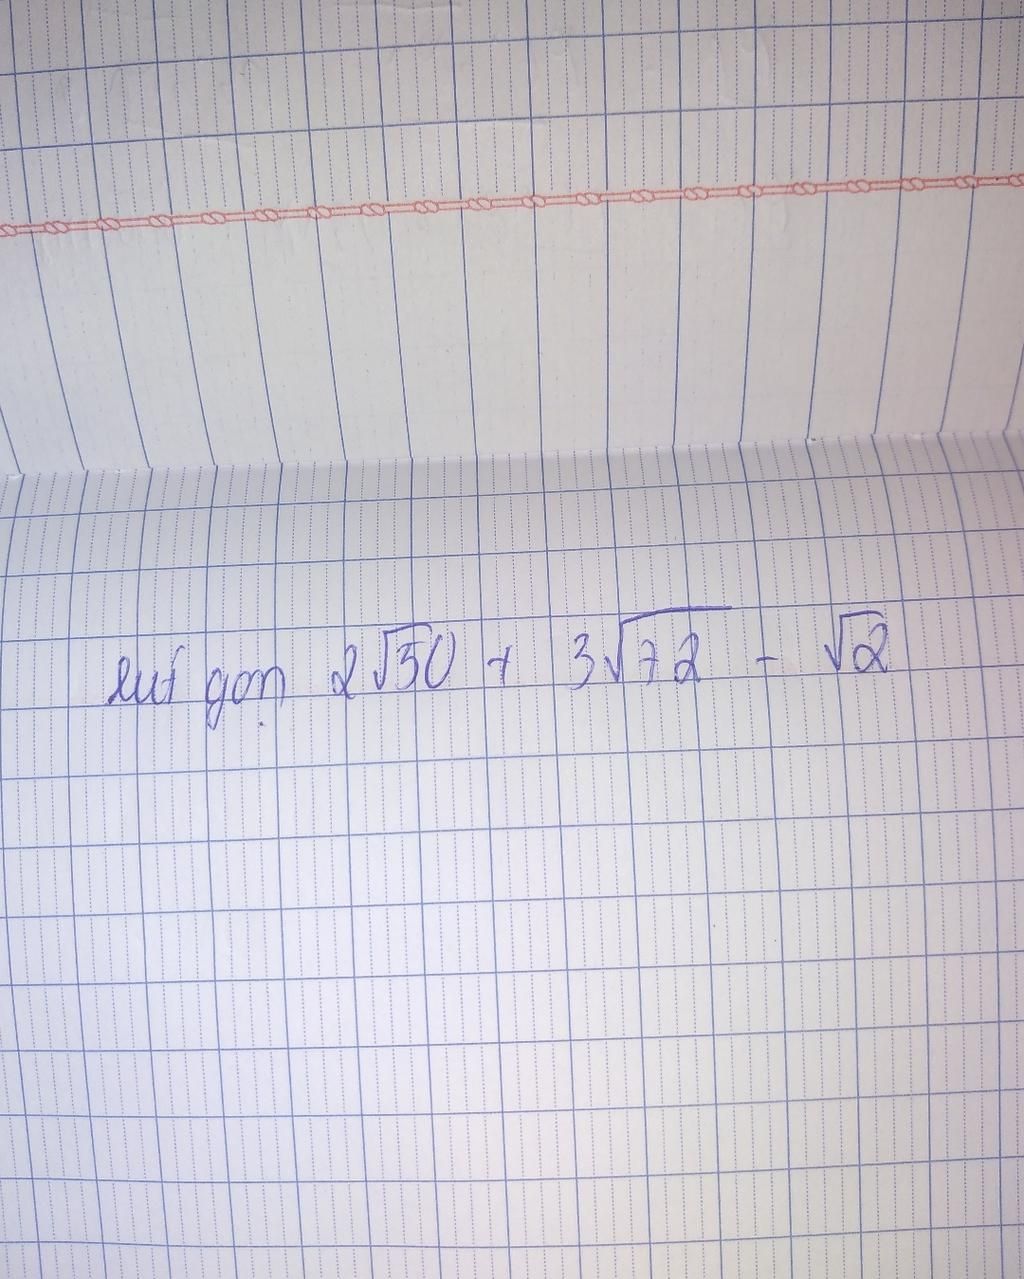 rut gọn 2√50 + 3√72 - √2